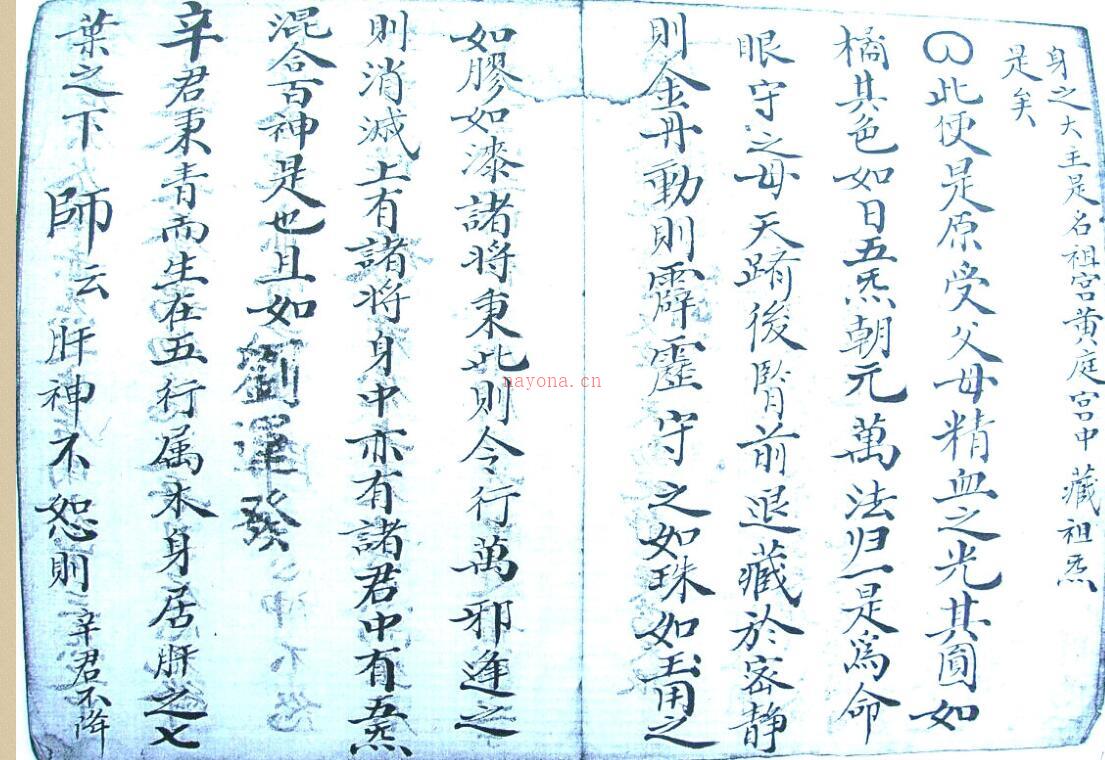 身之大主是名祖宮黄庭宮中藏祖炁
是矣
此便是原受父母精血之光其圓如
橘其色如日五炁朝元萬法归一是爲命
眼守之毋天蹐後腎前退藏於密静
則金丹動則霹靂守之如珠如玉用之
如膠如漆諸將秉此則令行萬邪逢之
則消滅上有諸將身中亦有諸君中有五炁
混合百神是也且如劉運發
辛君秉青而生在五行属木身居肝之七
葉之下師云肝神不恕則辛君不降
nayona.cn